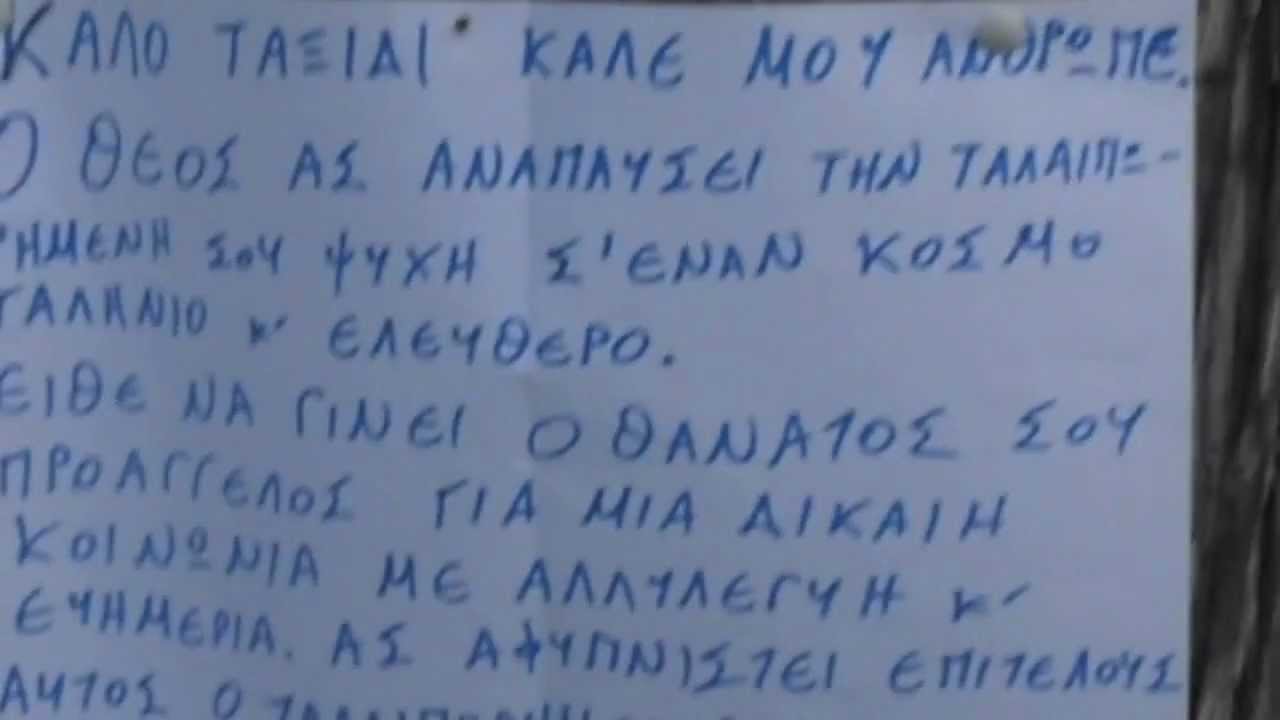 ΚΑΛΟ ΤΑΞΙΔΙ ΚΑΛΕ ΜΟΥ ΑΝΘΡΩΠΕ.
Ο ΘΕΟΣ ΑΣ ΑΝΑΠΑΥΣΕΙ ΤΗΝ ΤΑΛΑΙΠΩ-
ΡΗΜΕΝΗ ΣΟΥ ΨΥΧΗ Σ'ΕΝΑΝ ΚΟΣΜΟ
ΓΑΛΗΝΙΟ κ' ΕΛΕΥΘΕΡΟ.
ΕΙΘΕ ΝΑ ΓΙΝΕΙ Ο ΘΑΝΑΤΟΣ ΣΟΥ
ΠΡΟΑΓΓΕΛΟΣ ΓΙΑ ΜΙΑ ΔΙΚΑΙΗ
ΚΟΙΝΩΝΙΑ ΜΕ ΑΛΛΥΛΕΓΥΗ κ'
ΕΥΗΜΕΡΙΑ. ΑΣ ΑΦΥΠΝΙΣΤΕΙ ΕΠΙΤΕΛΟΥΣ
ΑΥΤΟΣ Ο